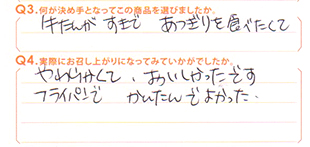 Q3.何が決め手となってこの商品を選びましたか。
牛たんが すきで あつぎりを食べたくて
Q4.実際にお召し上がりになってみていかがでしたか。
やわらかくて、おいしかったです
フライパンで かんたんでよかった.